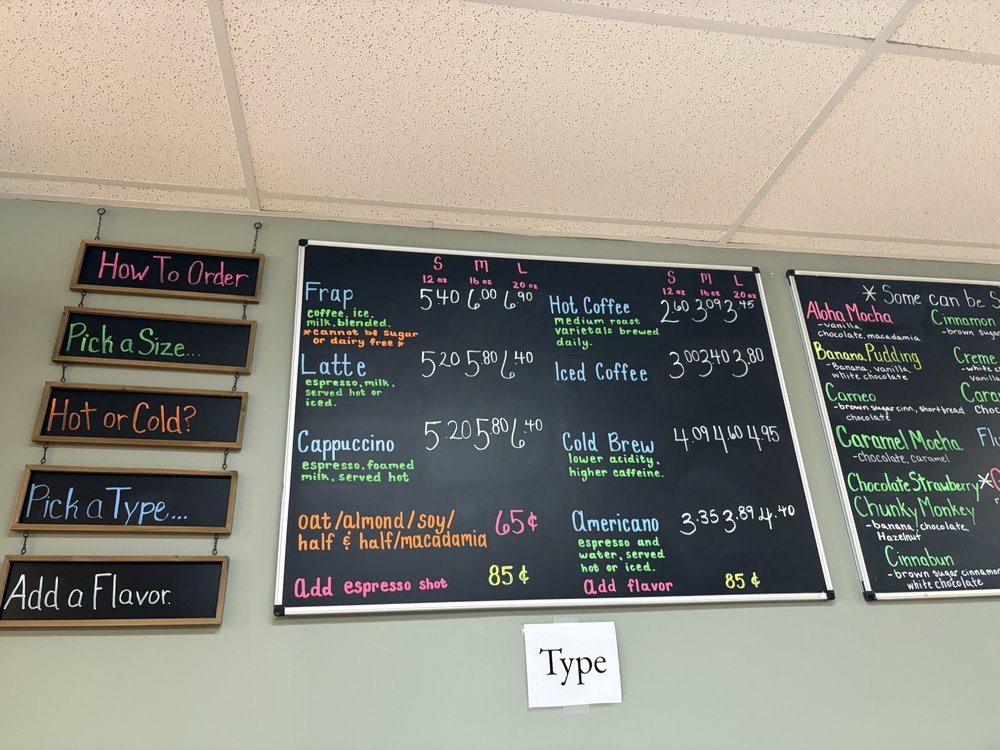 How To Order
Pick a Size...
Hot or Cold?
Pick a Type...
Add a Flavor.
S M L
12 oz 16 oz 20 oz
Frap 5.40 6.00 6.90
coffee, ice,
milk, blended.
*cannot be sugar
or dairy free*
Latte 5.20 5.80 6.40
espresso, milk,
served hot or
iced.
Cappuccino 5.20 5.80 6.40
espresso, foamed
milk, served hot
oat/almond/soy/
half & half/macadamia 65¢
Add espresso shot 85¢
S M L
12 oz 16 oz 20 oz
Hot Coffee 2.60 3.09 3.45
medium roast
varietals brewed
daily.
Iced Coffee 3.00 3.40 3.80
Cold Brew 4.09 4.60 4.95
lower acidity,
higher caffeine.
Americano 3.35 3.89 4.40
espresso and
water, served
hot or iced.
Add flavor 85¢
Type
* Some can be
Aloha Mocha
-vanilla,
chocolate, macadamia
Banana Pudding
-Banana, vanilla,
white chocolate
Cameo
-brown sugar cinn, shortbread
chocolate
Caramel Mocha
-chocolate, caramel
Chocolate Strawberry
Chunky Monkey
-banana, chocolate,
Hazelnut
Cinnabun
-brown sugar cinnamon
white chocolate
Cinnamon
-brown sugar
Creme